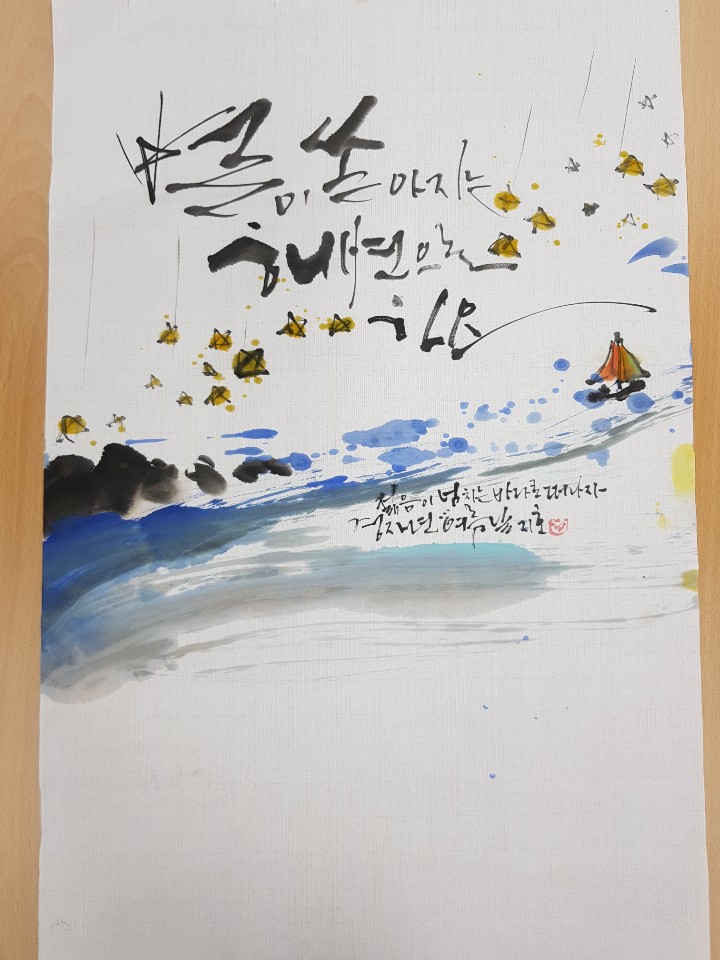 별이 쏟아지는
해변으로
가요
젊음이 넘치는 바다로 떠나자
경자년 여름날 지호